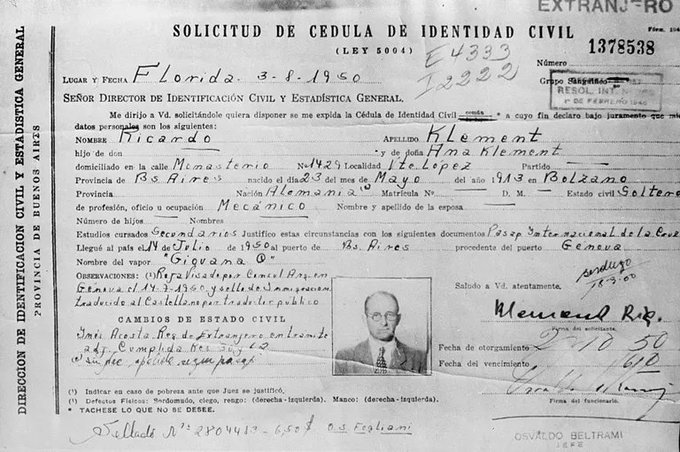 EXTRANJERO
SOLICITUD DE CEDULA DE IDENTIDAD CIVIL
(LEY 5004)
E4333
I2222
Número
1378538
LUGAR Y FECHA Florida 3-8-1950
Grupo
RESOL. INT.
1º DE FEBRERO 1940
SEÑOR DIRECTOR DE IDENTIFICACIÓN CIVIL Y ESTADÍSTICA GENERAL.
Me dirijo a Vd. solicitándole quiera disponer se me expida la Cédula de Identidad Civil común * a cuyo fin declaro bajo juramento que mis
datos personales son los siguientes:
NOMBRE Ricardo APELLIDO Klement
hijo de don y de doña Ana Klement
domiciliado en la calle Monasterio Nº 1429 Localidad Vte López Partido
Provincia de Bs Aires nacido el día 23 del mes de Mayo del año 1913 en Bolzano
Provincia Nación Alemania Matrícula Nº D. M. Estado civil Soltero
de profesión, oficio u ocupación Mecánico Nombre y apellido de la esposa
Número de hijos Nombres
Estudios cursados Secundarios Justifico estas circunstancias con los siguientes documentos Pasap Internacional de la Cruz
Llegué al país el 14 de Julio de 1950 al puerto de Bs. Aires procedente del puerto Genova
Nombre del vapor "Giovana C"
OBSERVACIONES: (1) por Consul Arg. en
Genova el 14-7-1950 y sello de Inmigracion
traducido al Castellano por traductor público
Saludo a Vd. atentamente.
CAMBIOS DE ESTADO CIVIL
Firma del solicitante.
Inés Acosta Reg de Extranjero en tramite
Fecha de otorgamiento 2 10 50
Fecha de vencimiento
Firma del funcionario.
(1) Indicar en caso de pobreza ante que Juez se justificó,
(2) Defectos Físicos: Sordomudo, ciego, rengo: (derecha-izquierda). Manco: (derecha-izquierda).
* TACHESE LO QUE NO SE DESEE.
Sellado Nº 2804413-6,50$ O.S. Fogliani
OSVALDO BELTRAMI
JEFE
DIRECCION DE IDENTIFICACIÓN CIVIL Y ESTADISTICA GENERAL
PROVINCIA DE BUENOS AIRES